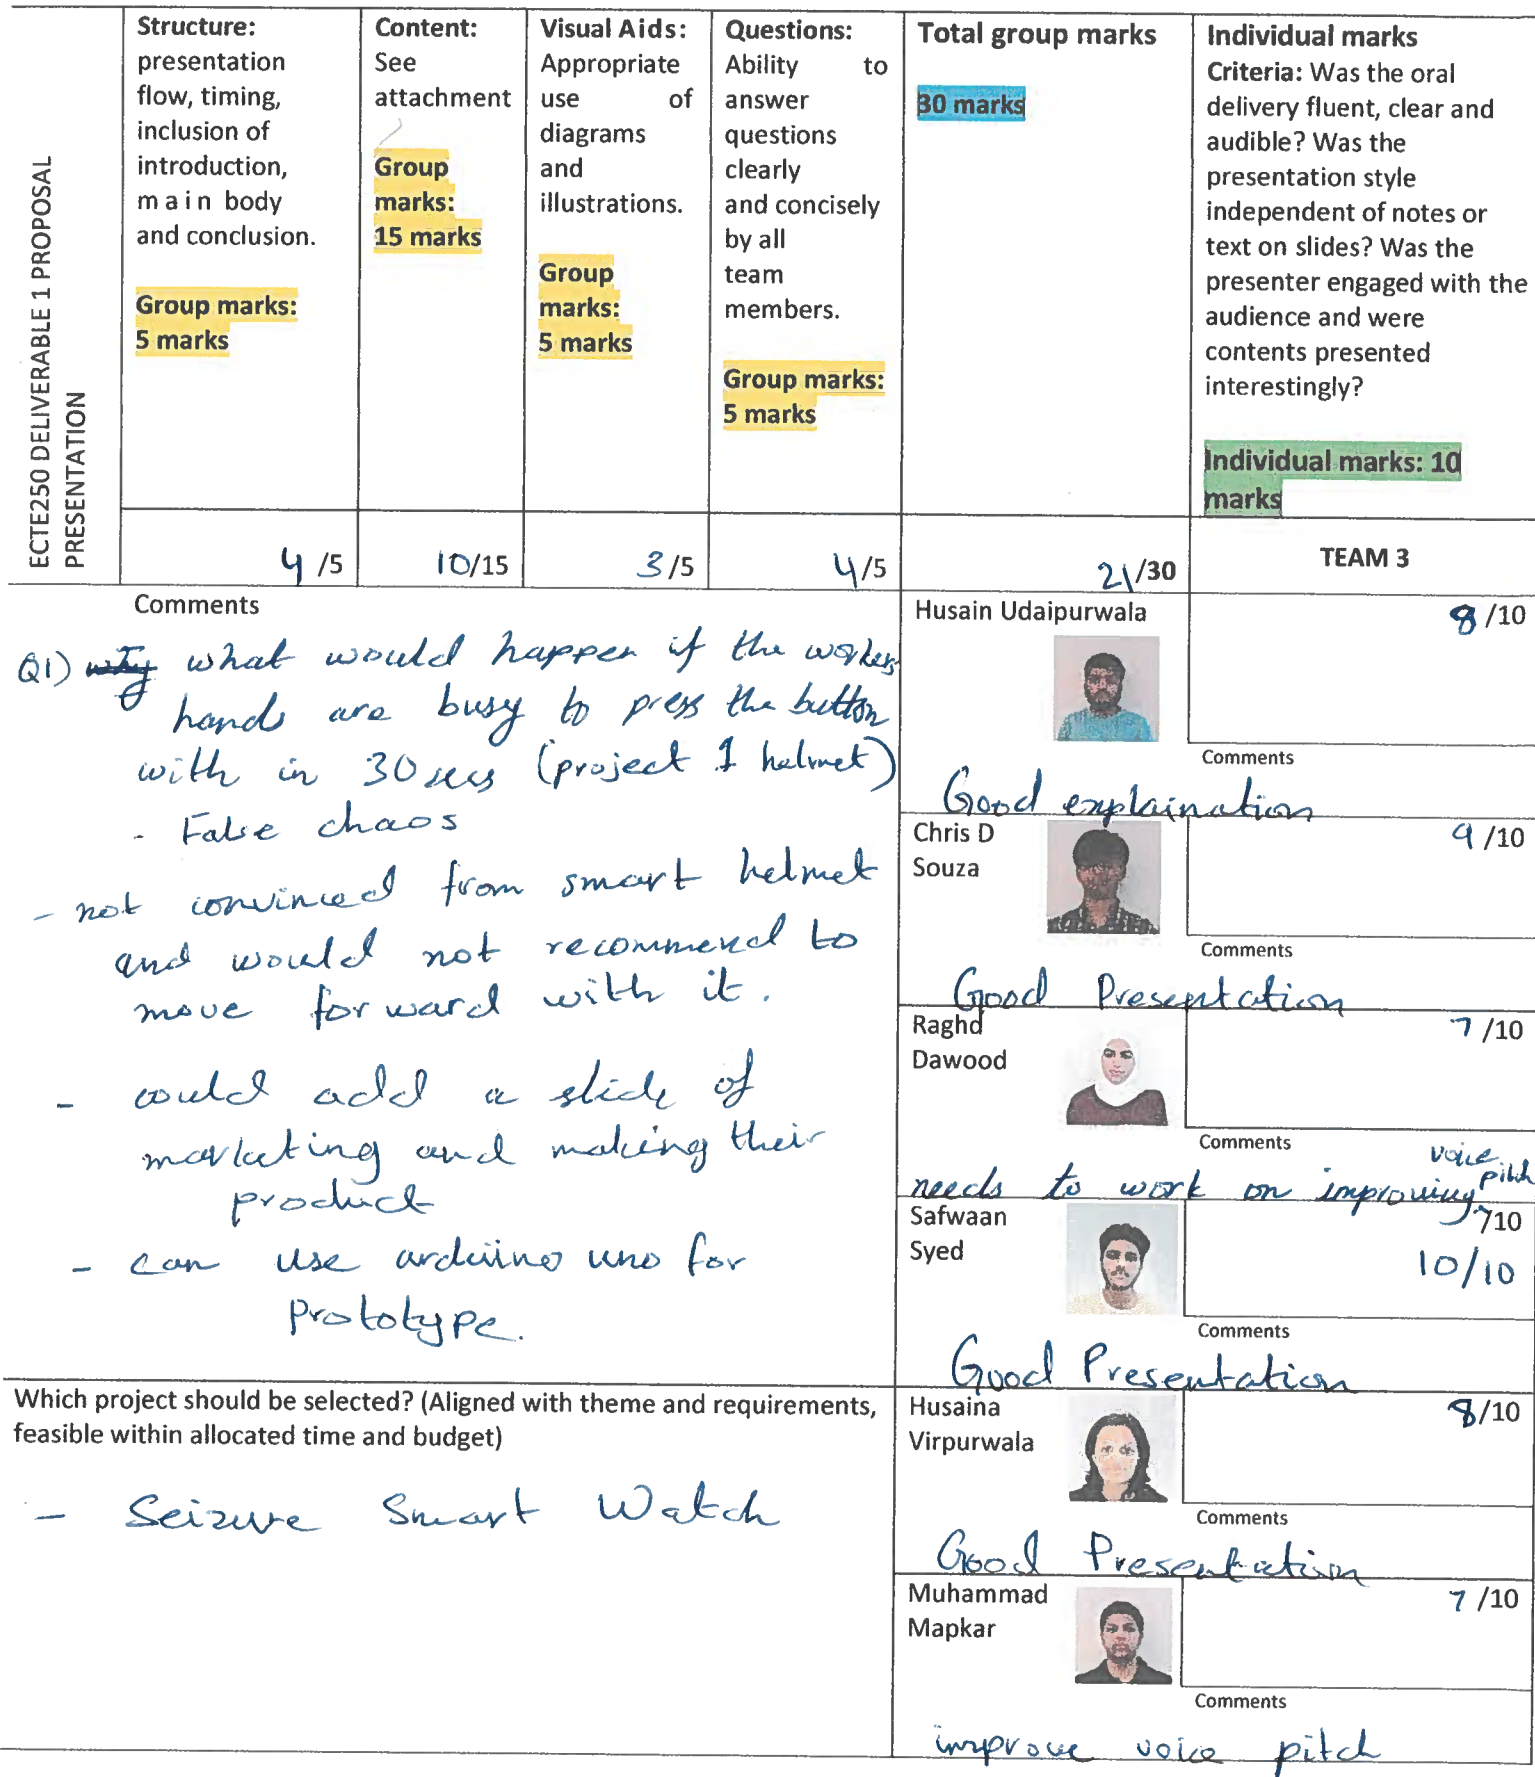 ECTE250 DELIVERABLE 1 PROPOSAL
PRESENTATION
Structure:
presentation
flow, timing,
inclusion of
introduction,
main body
and conclusion.
Group marks:
5 marks
Content:
See
attachment
Group
marks:
15 marks
Visual Aids:
Appropriate
use of
diagrams
and
illustrations.
Group
marks:
5 marks
Questions:
Ability to
answer
questions
clearly
and concisely
by all
team
members.
Group marks:
5 marks
Total group marks
30 marks
Individual marks
Criteria: Was the oral
delivery fluent, clear and
audible? Was the
presentation style
independent of notes or
text on slides? Was the
presenter engaged with the
audience and were
contents presented
interestingly?
Individual marks: 10
marks
4 /5
10/15
3/5
4/5
21/30
TEAM 3
Comments
Q1) why what would happen if the workers
hands are busy to press the button
with in 30 secs (project 1 helmet)
- False chaos
- not convinced from smart helmet
and would not recommend to
move forward with it.
- could add a slide of
marketing and making their
product
- can use arduino uno for
prototype.
Which project should be selected? (Aligned with theme and requirements,
feasible within allocated time and budget)
- Seizure Smart Watch
Husain Udaipurwala
8/10
Comments
Good explaination
Chris D
Souza
9/10
Comments
Good Presentation
Raghd
Dawood
7/10
Comments
needs to work on improving voice pitch
Safwaan
Syed
/10
10/10
Comments
Good Presentation
Husaina
Virpurwala
8/10
Comments
Good Presentation
Muhammad
Mapkar
7/10
Comments
improve voice pitch